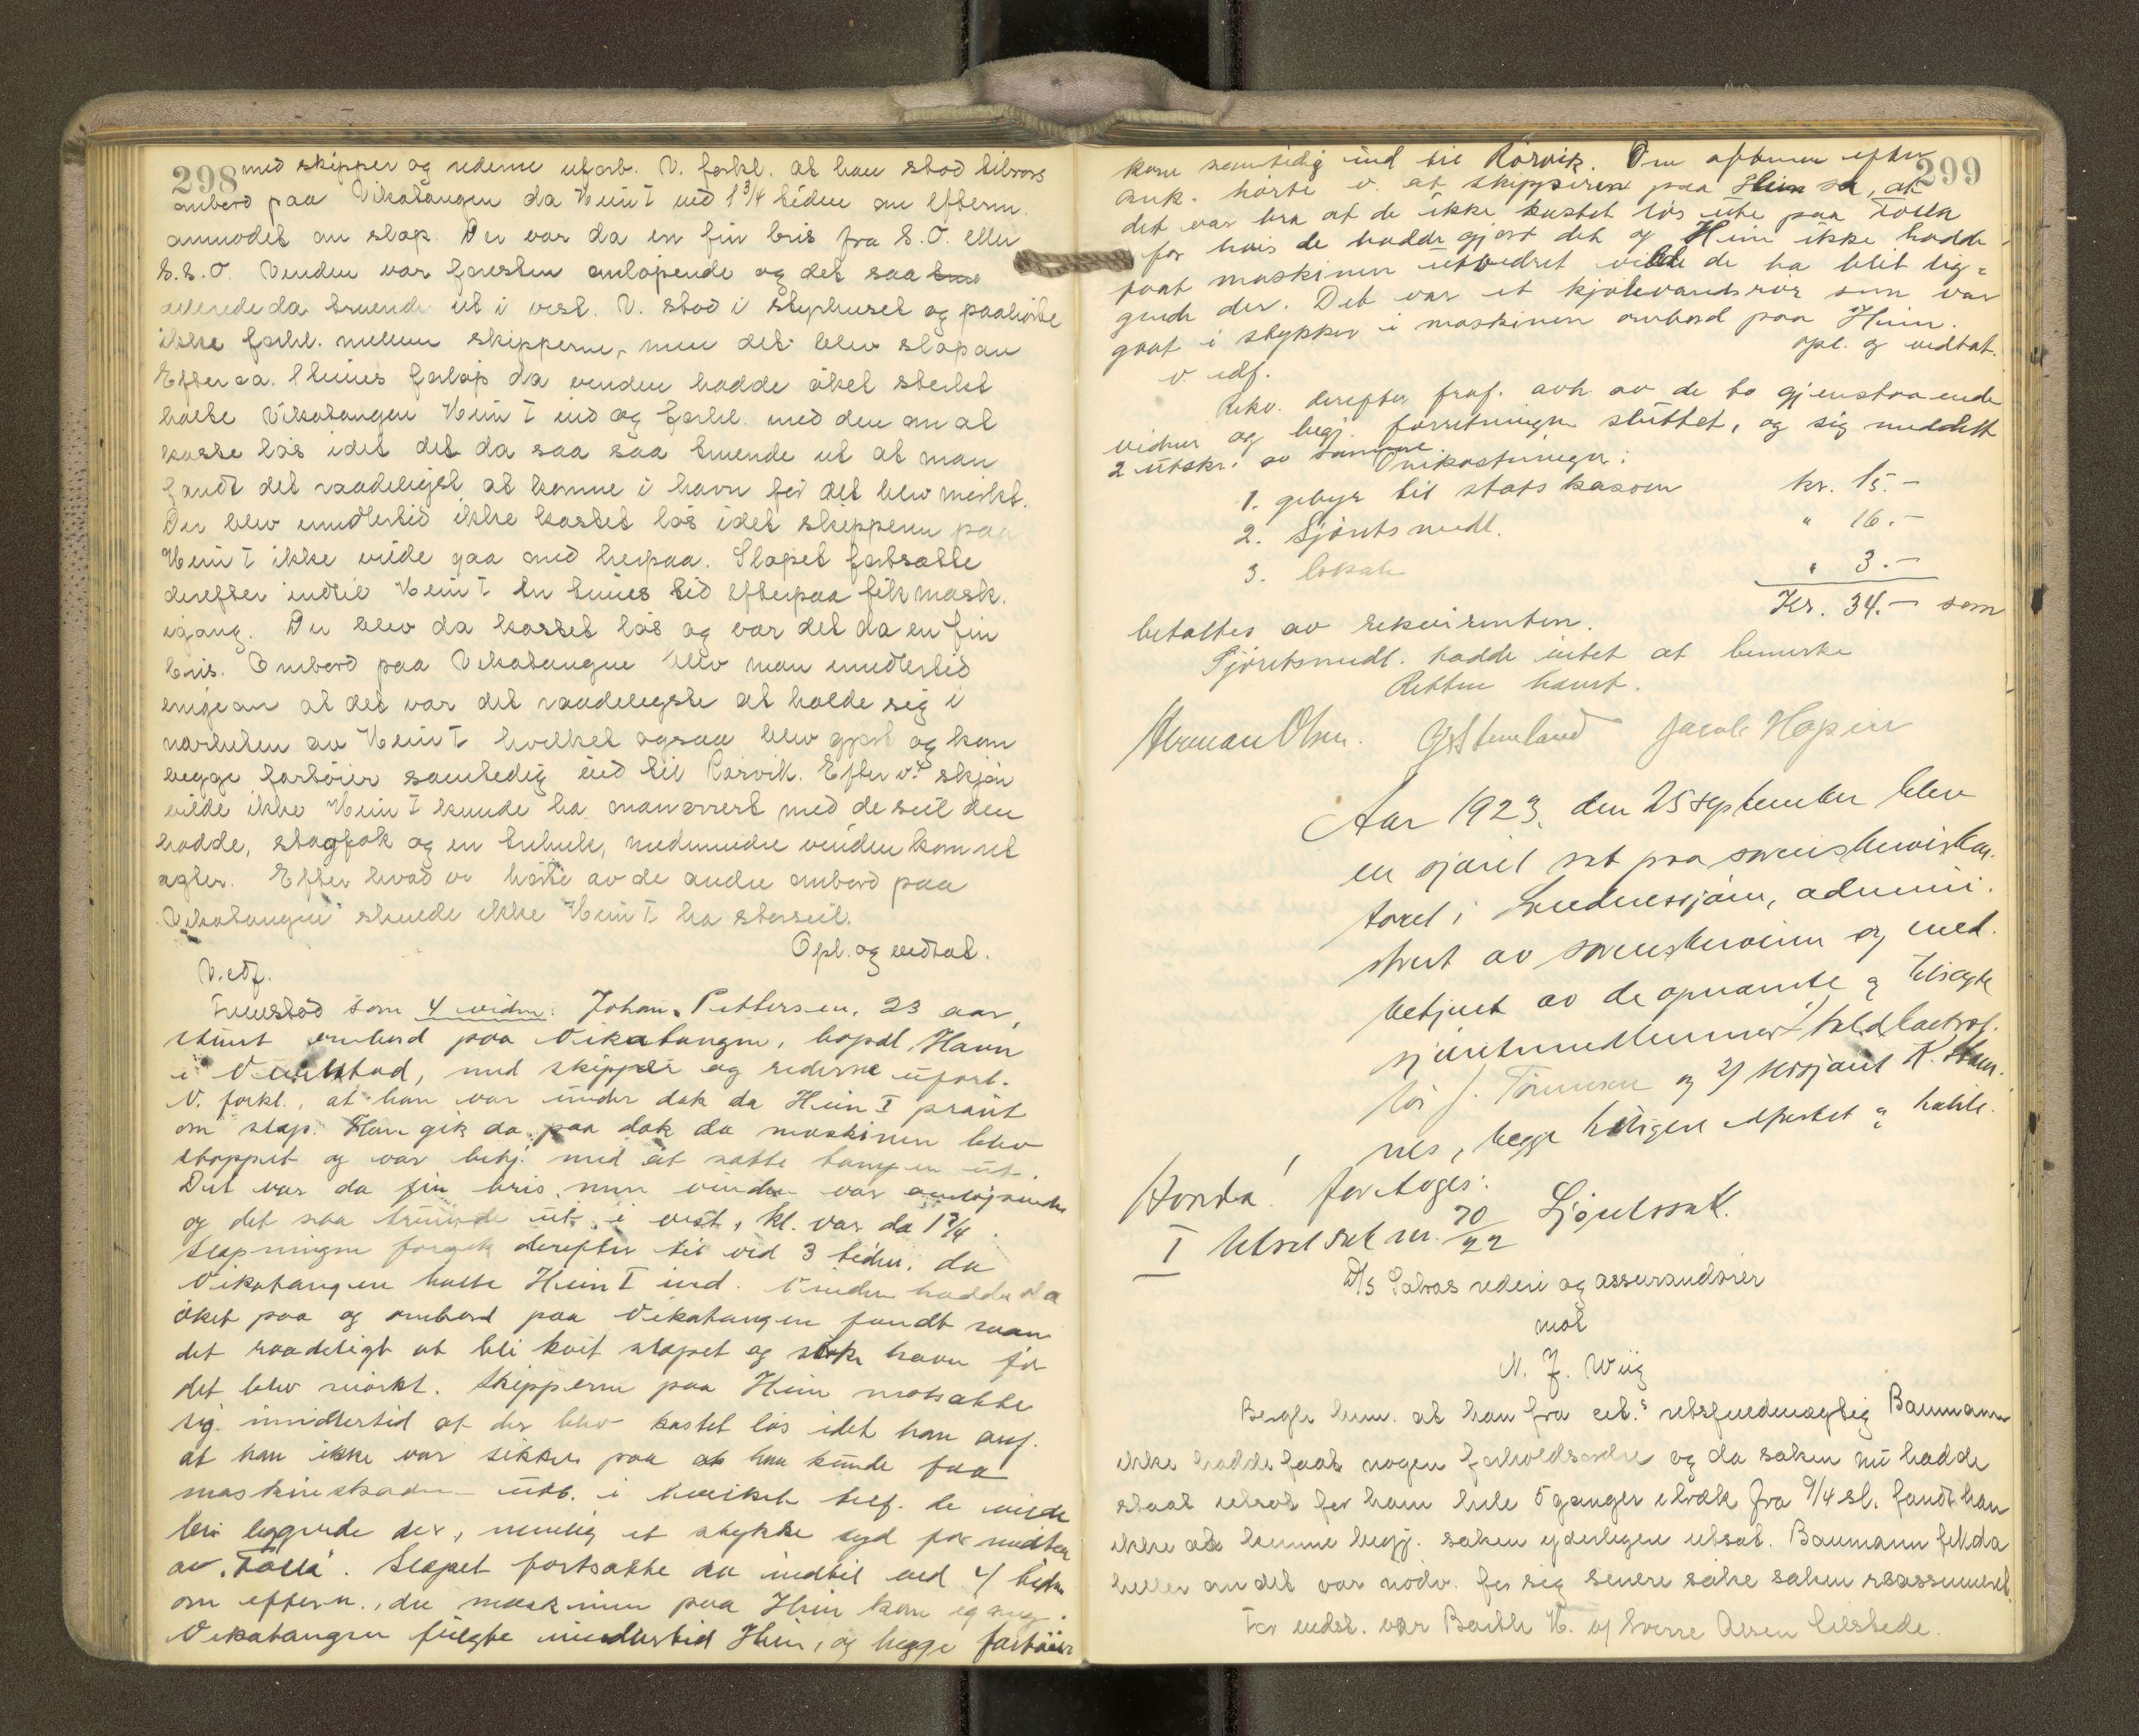 298 med skipper og rederne uforb. V. forkl. at han stod tilrors
ombord paa Vikatangen da Heim I ved 1 3/4 tiden om efterm.
anmodet om slæp. Der var da en fin bris fra S.O. eller
S.S.O. Vinden var foresten omløpende og det saa
allerede da truende ut i vest. V. stod i styrhuset og paahørte
ikke forhl. mellem skipperne, men det blev slæp av
Efter ca. 1 times forløp da vinden hadde øket sterkt
halte Vikatangen Heim I ind og forhl. med den om at
kaste løs idet det da saa saa truende ut at man
fandt det raadeligst at komme i havn før det blev mørkt.
Der blev imidlertid ikke kastet løs idet skipperen paa
Heim I ikke vilde gaa med herpaa. Slæpet fortsatte
derefter indtil Heim I en times tid efterpaa fik mask.
igang. Der blev da kastet løs og var det da en fin
bris. Ombord paa Vikatangen blev man imidlertid
enige om at det var det raadeligste at holde sig i
nærheten av Heim I hvilket ogsaa blev gjort og kom
begge fartøier samtidig ind til Rørvik. Efter v.s skjøn
vilde ikke Heim I kunde ha manøvrert med de seil den
hadde, stagfok og en trehule, medmindre vinden kom ret
agter. Efter hvad v. hørte av de andre ombord paa
Vikatangen skulde ikke Heim I ha storseil.
Opl. og vedtat.
V. edf.
Fremstod som 4 vidne: Johan Pettersen, 23 aar,
stuert ombord paa Vikatangen, bopæl Havn
i, med skipper og rederne uforb.
V. forkl., at han var under dæk da Heim I praiet
om slæp. Han gik da paa dæk da maskinen blev
stoppet og var behj. med at sætte tampen ut.
Det var da fin bris, men vinden var omløpende
og det saa truende ut i vest, kl. var da 1 3/4.
Slæpningen foregik derefter til ved 3 tiden, da
Vikatangen halte Heim I ind. Vinden hadde da
øket paa og ombord paa Vikatangen fandt man
det raadeligt at bli kvit slæpet og søke havn før
det blev mørkt. Skipperen paa Heim motsatte
sig imidlertid at der blev kastet løs idet han anf.
at han ikke var sikker paa at han kunde faa
maskinskaden utb. i hvilket tilf. de vilde
bli liggende der, nemlig et stykke syd for midten
av "Folla". Slæpet fortsatte da indtil ved 4 tiden
om efterm., da maskinen paa Heim kom igang.
Vikatangen fulgte imidlertid Heim, og begge fartøier
299
kom samtidig ind til Rørvik. Om aftenen efter
ank. hørte v. at skipperen paa Heim sa, at
det var bra at de ikke kastet løs ute paa Folla
for hvis de hadde gjort det og Heim ikke hadde
faat maskinen utbedret vilde de ha blit lig=
gende der. Det var et kjølevandsrør som var
gaat i stykker i maskinen ombord paa Heim.
opl. og vedtat.
v. edf.
Rekv. derefter fraf. avh. av de to gjenstaaende
vidner og begj. forretningen sluttet, og sig meddelt
2 utskr. av samme.
Omkostninger:
1. gebyr til statskassen kr. 15.-
2. Sjøretsmedl. " 16.-
3. lokale " 3.-
Kr. 34.- som
betaltes av rekvirenten.
Sjøretsmedl. hadde intet at bemerke
Retten hævet.
Herman Olsen. Jacob Hopen
Aar 1923, den 25 september blev
en sjøret sat paa sorenskriverkon-
toret i, admini-
strert av sorenskriveren og med-
betjent av de opnævnte og tilsagte
sjøretsmedlemmer 1/
J. Tønnesen og 2/ sersjant K.
nes, begge tidligere edfæstet og habile.
Hvorda! foretoges:
I Utsat sak nr. 70/22 Sjøretssak.
D/S Salvas rederi og assurandører
mot
N. J. Wiig
Bergh bem. at han fra cit.s retsfuldmægtig Baumann
ikke hadde faat nogen forholdsordre og da saken nu hadde
staat utsat for ham hele 5 ganger i træk fra 9/4 sl. fandt han
ikke at kunne begj. saken yderligere utsat. Baumann fik da
heller om det var nødv. for sig senere søke saken reassumeret.
For indst. var Barth v/ Sverre Olsen tilstede.